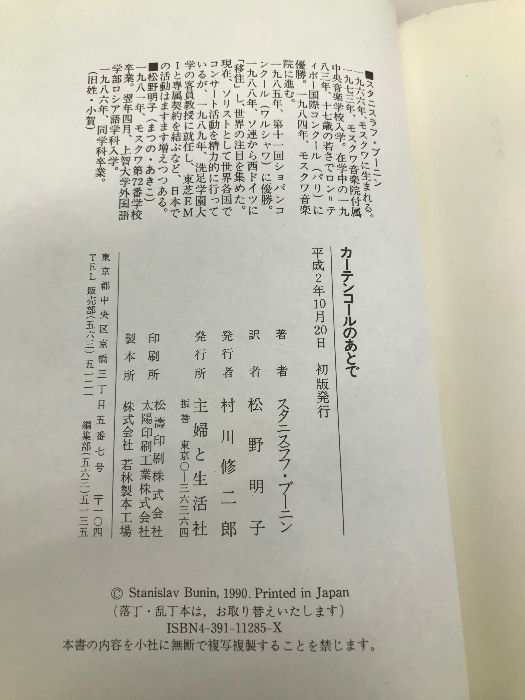 ■スタニスラフ・ブーニン
一九六六年、モスクワに生まれる。
一九七三年、モスクワ音楽院付属
中央音楽学校入学。在学中の一九
八三年、十七歳の若さでロン＝テ
ィボー国際コンクール（パリ）に
優勝。一九八四年、モスクワ音楽
院に進む。
一九八五年、第十一回ショパンコ
ンクール（ワルシャワ）に優勝。
一九八八年、ソ連から西ドイツに
「移住」し、世界の注目を集めた。
現在、ソリストとして世界各国で
コンサート活動を精力的に行って
いるが、一九八九年、洗足学園大
学の客員教授に就任し、東芝ＥＭ
Ｉと専属契約を結ぶなど、日本で
の活動はますます増えつつある。
■松野明子（まつの・あきこ）
一九八一年、モスクワ第72番学校
卒業。翌年四月、上智大学外国語
学部ロシア語学科入学。
一九八六年、同学科卒業。
（旧姓・小賀）
カーテンコールのあとで
平成２年10月20日　初版発行
著者　スタニスラフ・ブーニン
訳者　松野明子
発行者　村川修二郎
発行所　主婦と生活社
振替　東京〇―三六三六四
印刷所　松濤印刷株式会社
太陽印刷工業株式会社
製本所　株式会社　若林製本工場
東京都中央区京橋三丁目五番七号　〒一〇四
TEL 販売部（五六三）五一二一　編集部（五六三）五一三五
© Stanislav Bunin, 1990. Printed in Japan
（落丁・乱丁本は，お取り替えいたします）
ISBN4-391-11285-X
本書の内容を小社に無断で複写複製することを禁じます。